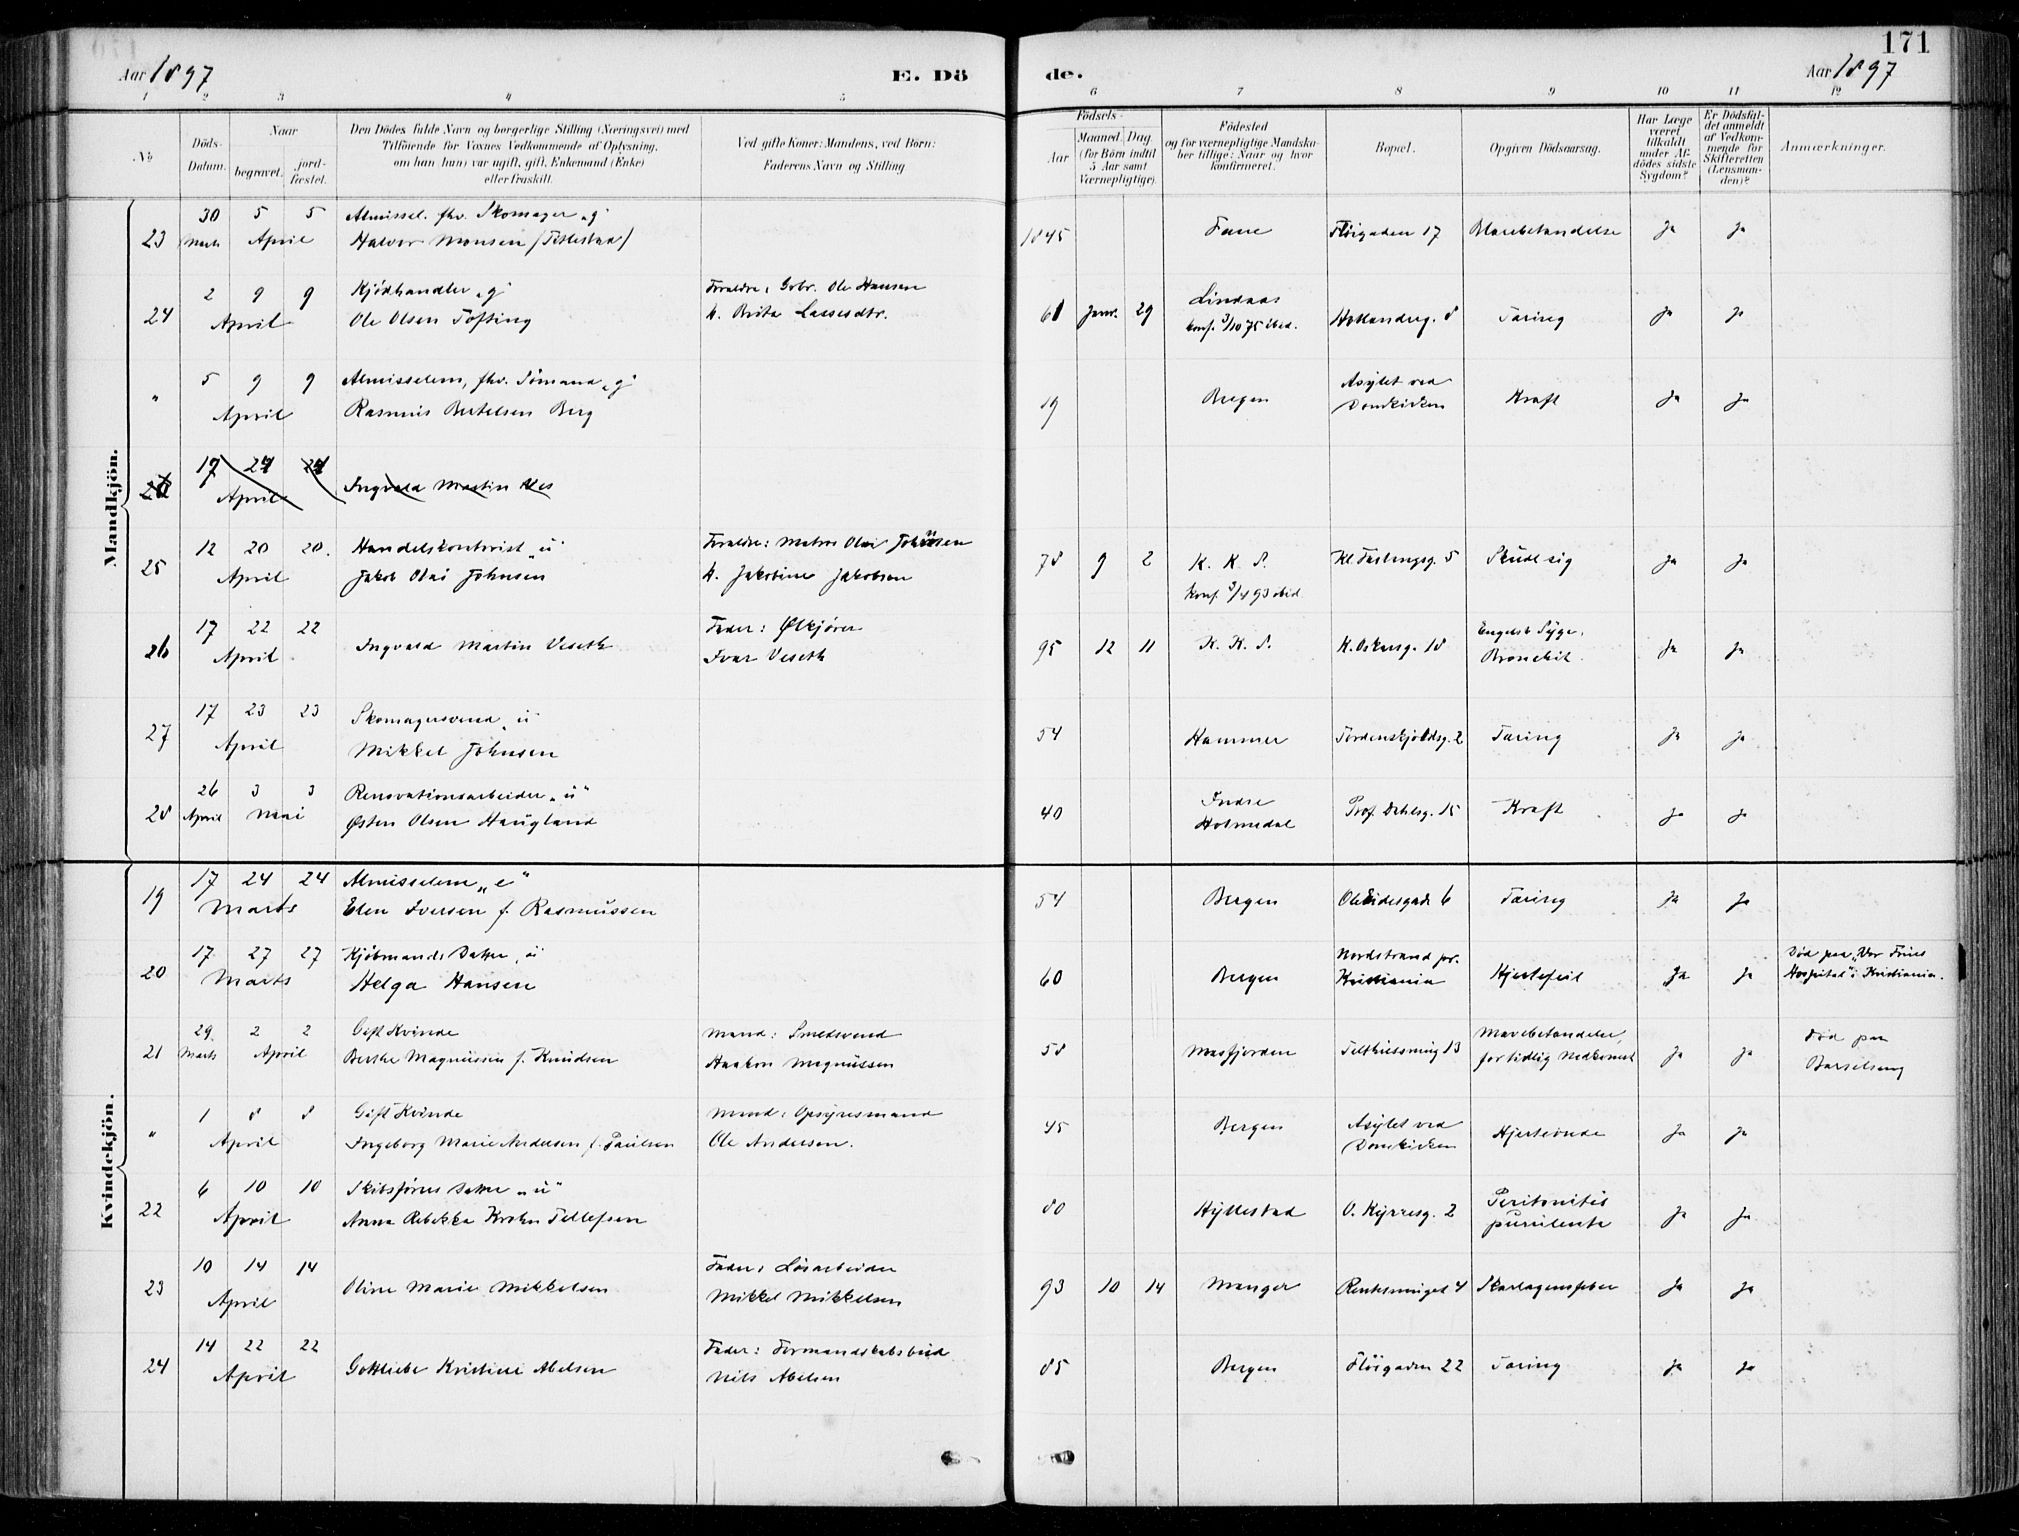 171
Aar 1897
E. Dö
de.
Aar 1897
1 2 3 4 5 6 7 8 9 10 11 12
No
Döds-Datum.
Naar
begravet.
jord-fæstet.
Den Dödes fulde Navn og borgerlige Stilling (Næringsvei) med
Tilföiende for Voxnes Vedkommende af Oplysning,
om han (hun) var ugift, gift, Enkemand (Enke)
eller fraskilt.
Ved gifte Koner: Mandens, ved Börn:
Faderens Navn og Stilling
Födsels-
Aar
Maaned. Dag
(for Börn indtil
5 Aar samt
Værnepligtige).
Födested
og for værnepligtige Mandska-
ber tillige: Naar og hvor
konfirmeret.
Bopæl.
Opgiven Dödsaarsag.
Har Læge
været
tilkaldt
under Af-
dödes sidste
Sygdom?
Er Dödsfal-
det anmeldt
af Vedkom-
mende for
Skifteretten
(Lensman-
den)?
Anmærkninger.
Mandkjön.
30 5 5 Almissel. fhv. Skomager „g"
23 Marts April Halvor Monsen (Tittlestad) 1845 Fane Fløigaden 17 Blærebetændelse Ja Ja
2 9 9 Kjødhandler „g" Forældre: Gvbr. Ole Hansen
24 April Ole Olsen Tofting k. Brita Lassesdtr. 61 Janr. 29 Lindaas Hollanderg. 8 Tæring Ja Ja
konf. 3/10 75 ibid.
5 9 9 Almisselem, fhv. Sømand „g"
" April Rasmus Bertelsen Berg 19 Bergen Asylet ved Domkirken Kræft Ja Ja
17 24 24
26 April Ingvald Martin Ves
12 20 20. Handelskontorist „u" Forældre: Matros Olai Johnsen
25 April Jakob Olai Johnsen k. Jakobine Jakobsen 78 9 2 K. K. S. Kl. Fastingsg. 5 Ja Ja
konf. 3/4 93 ibid.
17 22 22 Fader: Ølkjører
26 April Ingvald Martin Veseth Ivar Veseth 95 12 11 K. K. S. K. Oskarsg. 18 Engelsk Syge. Bronchit. Ja Ja
17 23 23 Skomagersvend „u"
27 April Mikkel Johnsen 54 Hammer Tordenskjoldsg. 2 Tæring Ja Ja
26 3 3 Renovationsarbeider „u"
28 April Mai Østen Olsen Haugland 40 Indre Holmedal Prof. Dahlsg. 15 Kræft Ja Ja
Kvindekjön.
17 24 24 Almisselem „e"
19 Marts Elen Iversen f. Rasmussen 54 Bergen Ole Tidesgade 6 Tæring Ja Ja
17 27 27 Kjøbmands Datter „u"
20 Marts Helga Hansen 60 Bergen Nordstrand pr. Kristiania Hjertefeil Ja Ja Død paa „Vor Frues Hospital" i Kristiania.
29 2 2 Gift Kvinde Mand: Smedsvend
21 Marts April Berthe Magnussen f. Knudsen Haakon Magnussen 58 Masfjorden Telthussmug 13 Mavebetændelse, for tidlig Nedkomst Ja Ja Død paa Barselseng
1 8 8 Gift Kvinde Mand: Opsynsmand
" April Ingeborg Marie Andersen f. Paulsen Ole Andersen. 45 Bergen Asylet ved Domkirken Hjerteonde Ja Ja
6 10 10 Skibsførers Datter „u"
22 April Anna Rebekka Krohn Tellefsen 80 Hyllestad O. Kyrresg. 2 Peritonitis purulenta Ja Ja
10 14 14 Fader: Løsarbeider
23 April Oline Marie Mikkelsen Mikkel Mikkelsen 93 10 14 Manger Rentesmuget 4 Skarlagensfeber Ja Ja
14 22 22 Fader: Formandskabsbud
24 April Gottliebe Kristine Abelsen Nils Abelsen 85 Bergen Fløigaden 22 Tæring Ja Ja